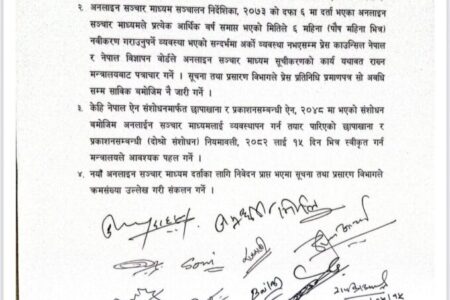 २. अनलाइन सञ्चार माध्यम सञ्चालन निर्देशिका, २०७३ को दफा ६ मा दर्ता भएका अनलाइन
सञ्चार माध्यमले प्रत्येक आर्थिक वर्ष समाप्त भएको मितिले ६ महिना (पौष महिना भित्र)
नवीकरण गराउनुपर्ने व्यवस्था भएको सन्दर्भमा अर्को व्यवस्था नभएसम्म प्रेस काउन्सिल नेपाल
र नेपाल विज्ञापन बोर्डले अनलाइन सञ्चार माध्यम सूचीकरणको कार्य यथावत राख्न
मन्त्रालयबाट पत्राचार गर्ने । सूचना तथा प्रसारण विभागले प्रेस प्रतिनिधि प्रमाणपत्र सो अवधि
सम्म साविक बमोजिम नै जारी गर्ने ।
३. केहि नेपाल ऐन संशोधनमार्फत छापाखाना र प्रकाशनसम्बन्धी ऐन, २०४८ मा भएको संशोधन
बमोजिम अनलाईन सञ्चार माध्यमलाई व्यवस्थापन गर्न तयार पारिएको छापाखाना र
प्रकाशनसम्बन्धी (दोश्रो संशोधन) नियमावली, २०८२ लाई १५ दिन भित्र स्वीकृत गर्न
मन्त्रालयले आवश्यक पहल गर्ने ।
४. नयाँ अनलाइन सञ्चार माध्यम दर्ताका लागि निवेदन प्राप्त भएमा सूचना तथा प्रसारण विभागले
क्रमसंख्या उल्लेख गरी संकलन गर्ने ।
Soni